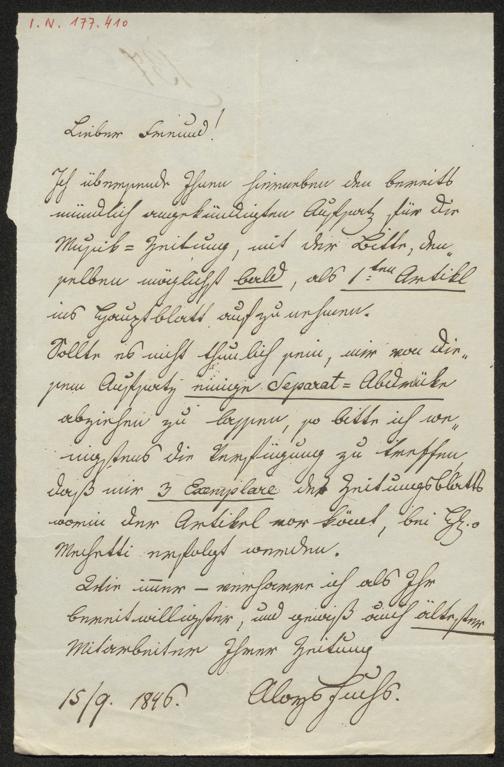 I. N. 177.410
Lieber Freund!
Ich übersende Ihnen hierneben den bereits
mündlich angekündigten Aufsatz für die
Musik=Zeitung, mit der Bitte, den„
selben möglichst bald, als 1ten Artikl
ins Hauptblatt aufzunehmen.
Sollte es nicht thunlich sein, mir von die„
sem Aufsatz einige Separat=Abdrücke
abziehen zu lassen, so bitte ich we„
nigstens die Verfügung zu treffen
daß mir 3 Exemplare des Zeitungsblatts
worin der Artikel vor kömt, bei H.
Mechetti erfolgt werden.
Wie immer – verharre ich als Ihr
bereitwilligster, und gewiß auch ältester
Mitarbeiter Ihrer Zeitung
15/9. 1846. Aloys Fuchs.